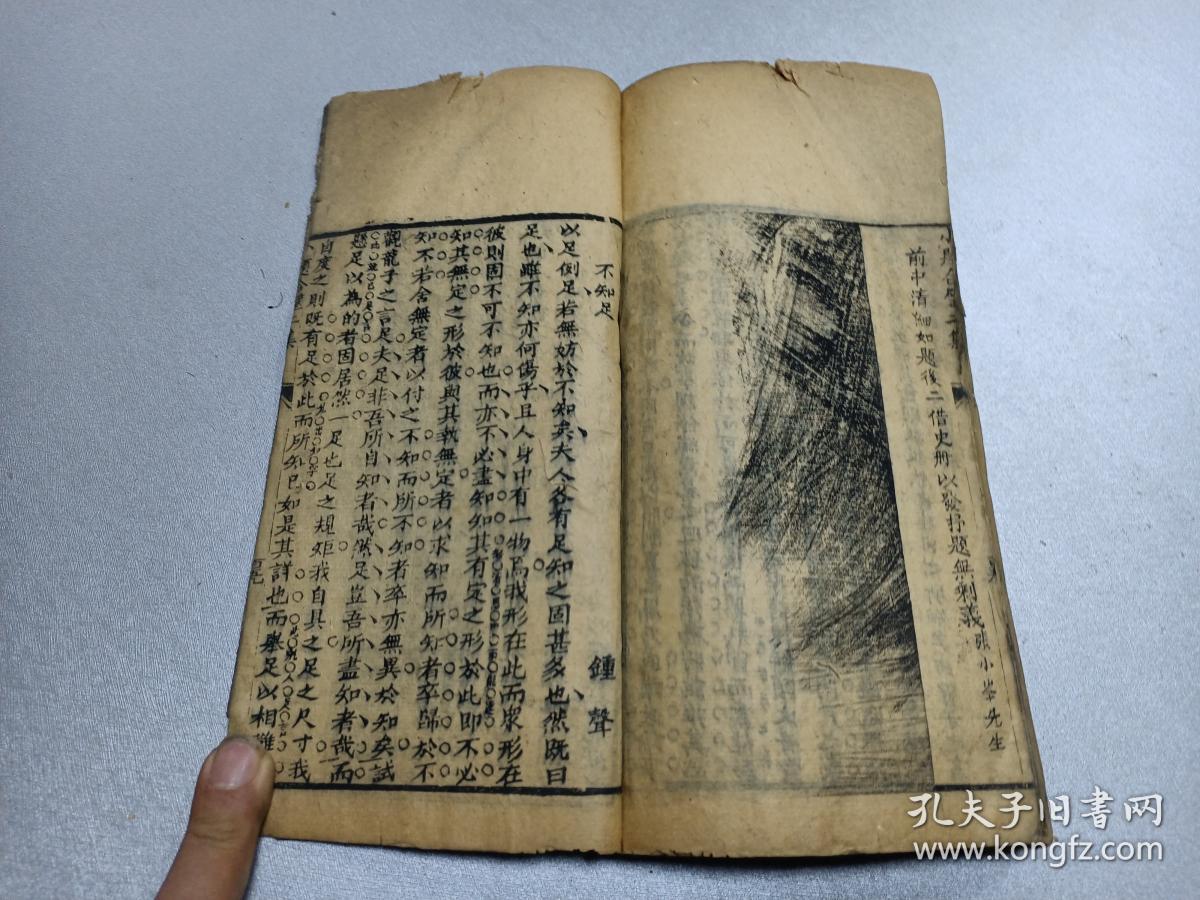 前中清細如題後二借史冊以發抒題無剩義張小峯先生
不知足
鍾聲
以足倒足若無妨於不知矣夫人各有足知之固甚多也然既曰
足也雖不知亦何傷乎且人身中有一物焉我形在此而眾形在
彼則固不可不知也而亦不必盡知知其有定之形於此即不必
知其無定之形於彼與其執無定者以求知而所知者卒歸於不
知不若舍無定者以付之不知而所不知者卒亦無異於知矣試
觀龍子之言足夫足非吾所自知者哉然足豈吾所盡知者哉而
懸足以為的者固居然一足也足之規矩我自具之足之尺寸我
自度之則既有足於此而所知已如是其詳也而舉足以相難
孔夫子旧书网
www.kongfz.com